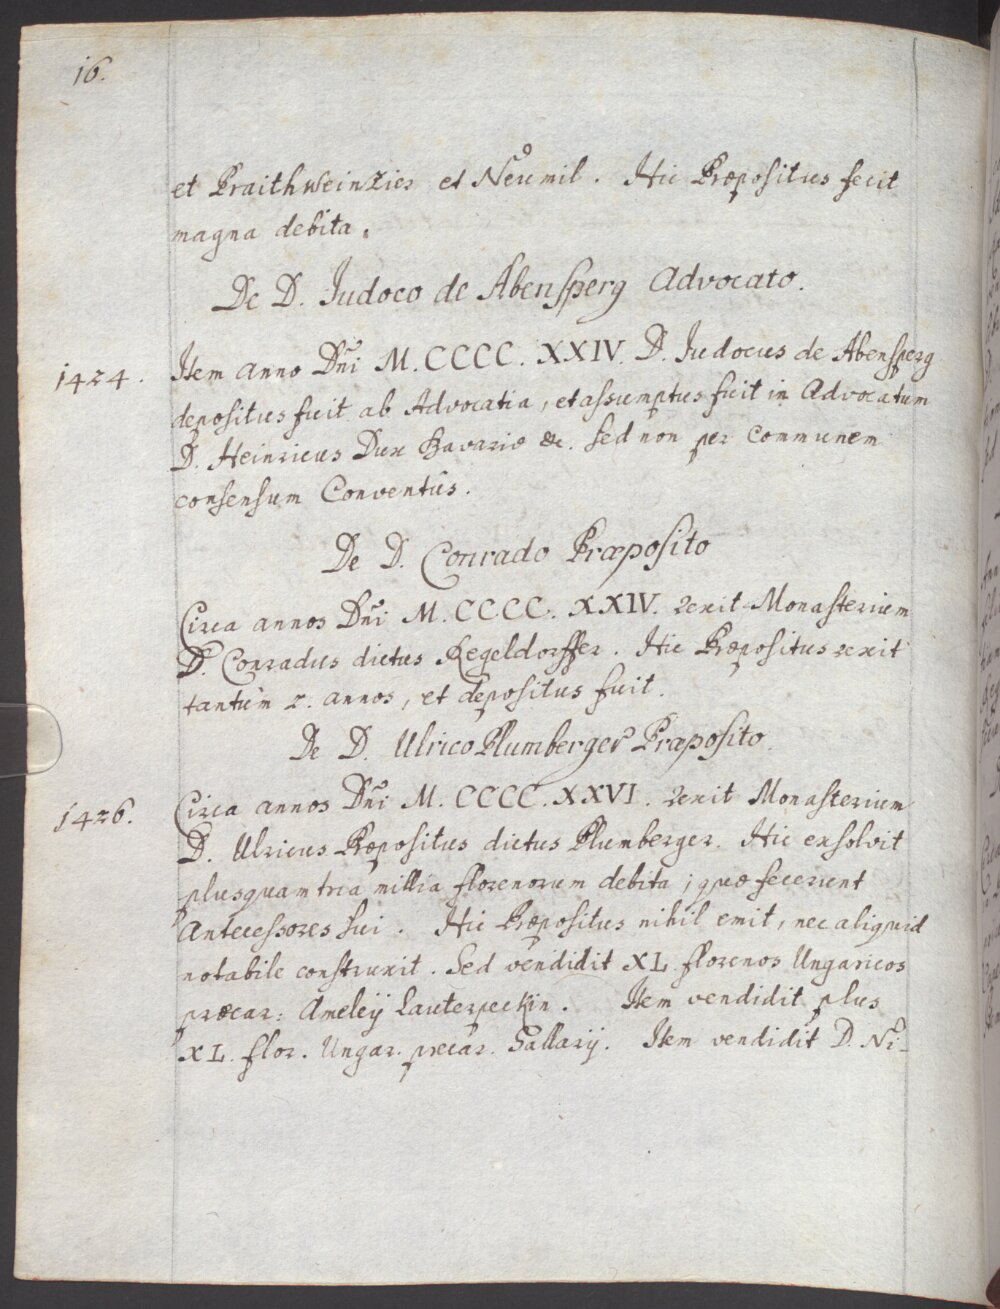 16.
et Praithweinzier et Neumil. Hic Præpositus fecit
magna debita.
De D. Judoco de Abensperg Advocato.
1424. Item anno Dñi M. CCCC. XXIV. D. Judocus de Abensperg
depositus fuit ab Advocatia, et assumptus fuit in Advocatum
D. Heinricus Dux Bavariæ &c. sed non per communem
consensum Conventûs.
De D. Conrado Præposito
Circa annos Dñi M. CCCC. XXIV. rexit Monasterium
D. Conradus dictus Hegeldorffer. Hic Præpositus rexit
tantùm 2. annos, et depositus fuit.
De D. Ulrico Plumberger Præposito
1426. Circa annos Dñi M. CCCC. XXVI. rexit Monasterium
D. Ulricus Præpositus dictus Plumberger. Hic exsolvit
plusquam tria millia florenorum debita; quæ fecerunt
Antecessores sui. Hic Præpositus nihil emit, nec aliquid
notabile construxit. Sed vendidit XL. florenos Ungaricos
præcar: Ameleÿ Lauterpeckin. Item vendidit plus
XL. flor. Ungar. precar. Sallarÿ. Item vendidit D. Ni-